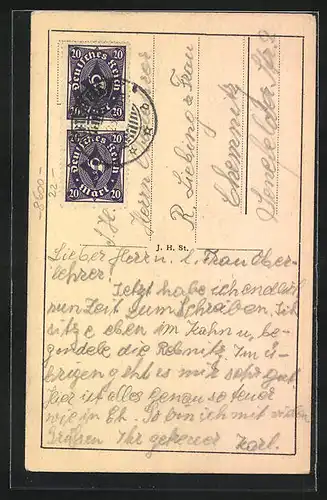 Deutsches Reich
20 20
Mark
Deutsches Reich
20 20
Mark
8600-
22-
S.H.
Herrn
R. Liebing & Frau
Chemnitz
J. H. St.
Lieber Herr u. l. Frau Ober-
lehrer! Jetzt habe ich endlich
nun Zeit zum Schreiben. Ich
sitze eben im Kahn u. be-
gondele die Rednitz. Im ü-
brigen geht es mir sehr gut
hier ist alles genau so teuer
wie in Ch. So bin ich mit vielen
Grüßen Ihr getreuer Karl.